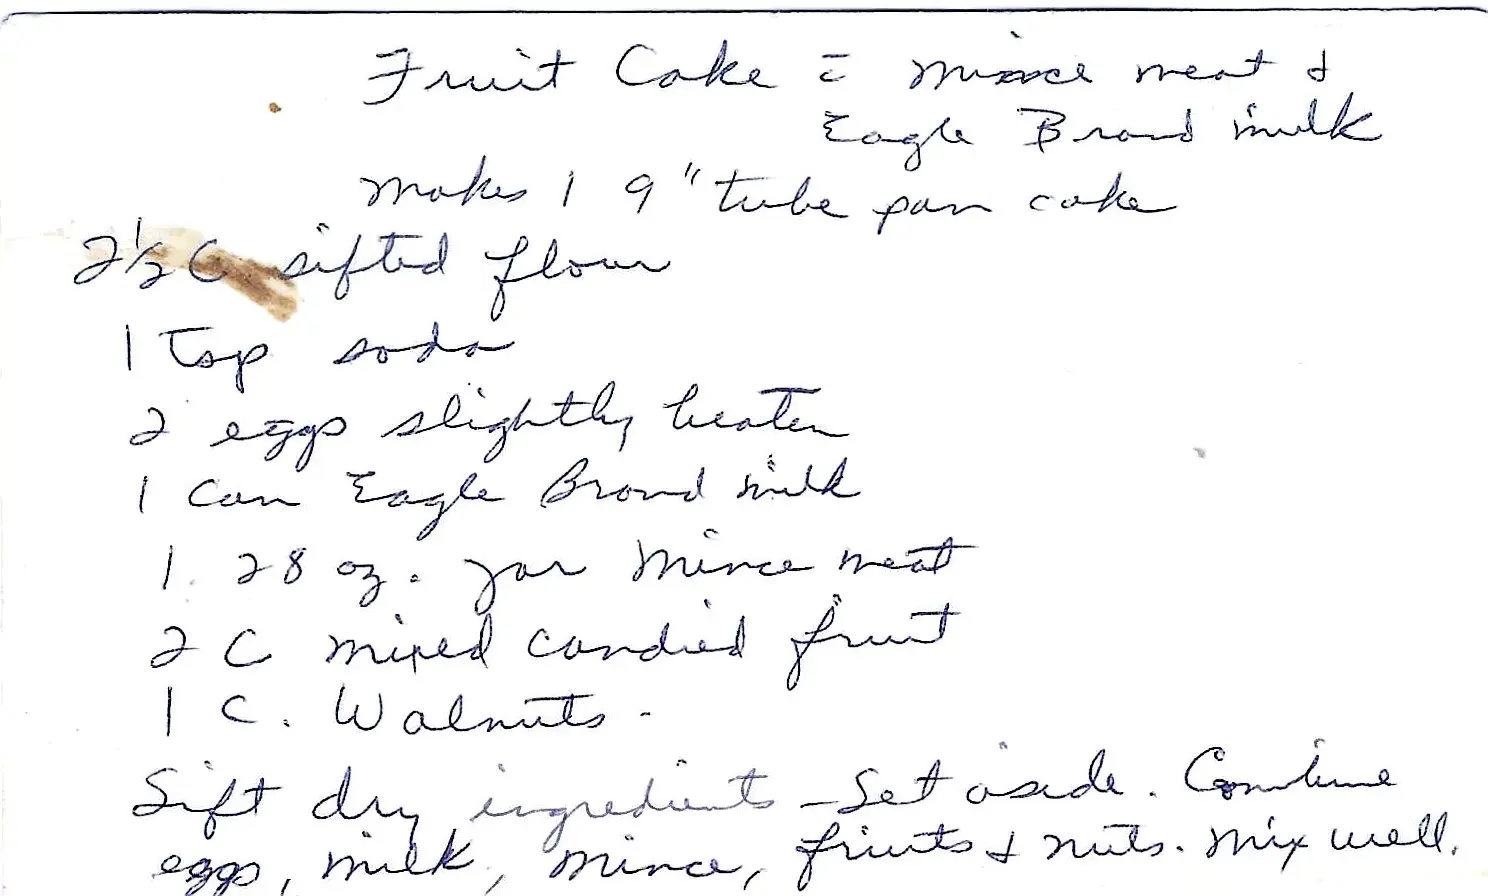 Fruit Cake = mince meat &
Eagle Brand milk
makes 1 9" tube pan cake
2 1/2 C sifted flour
1 tsp soda
2 eggs slightly beaten
1 can Eagle Brand milk
1. 28 oz. jar mince meat
2 C mixed candied fruit
1 C. Walnuts -
Sift dry ingredients - Set aside. Combine
eggs, milk, mince, fruits & nuts. Mix well.